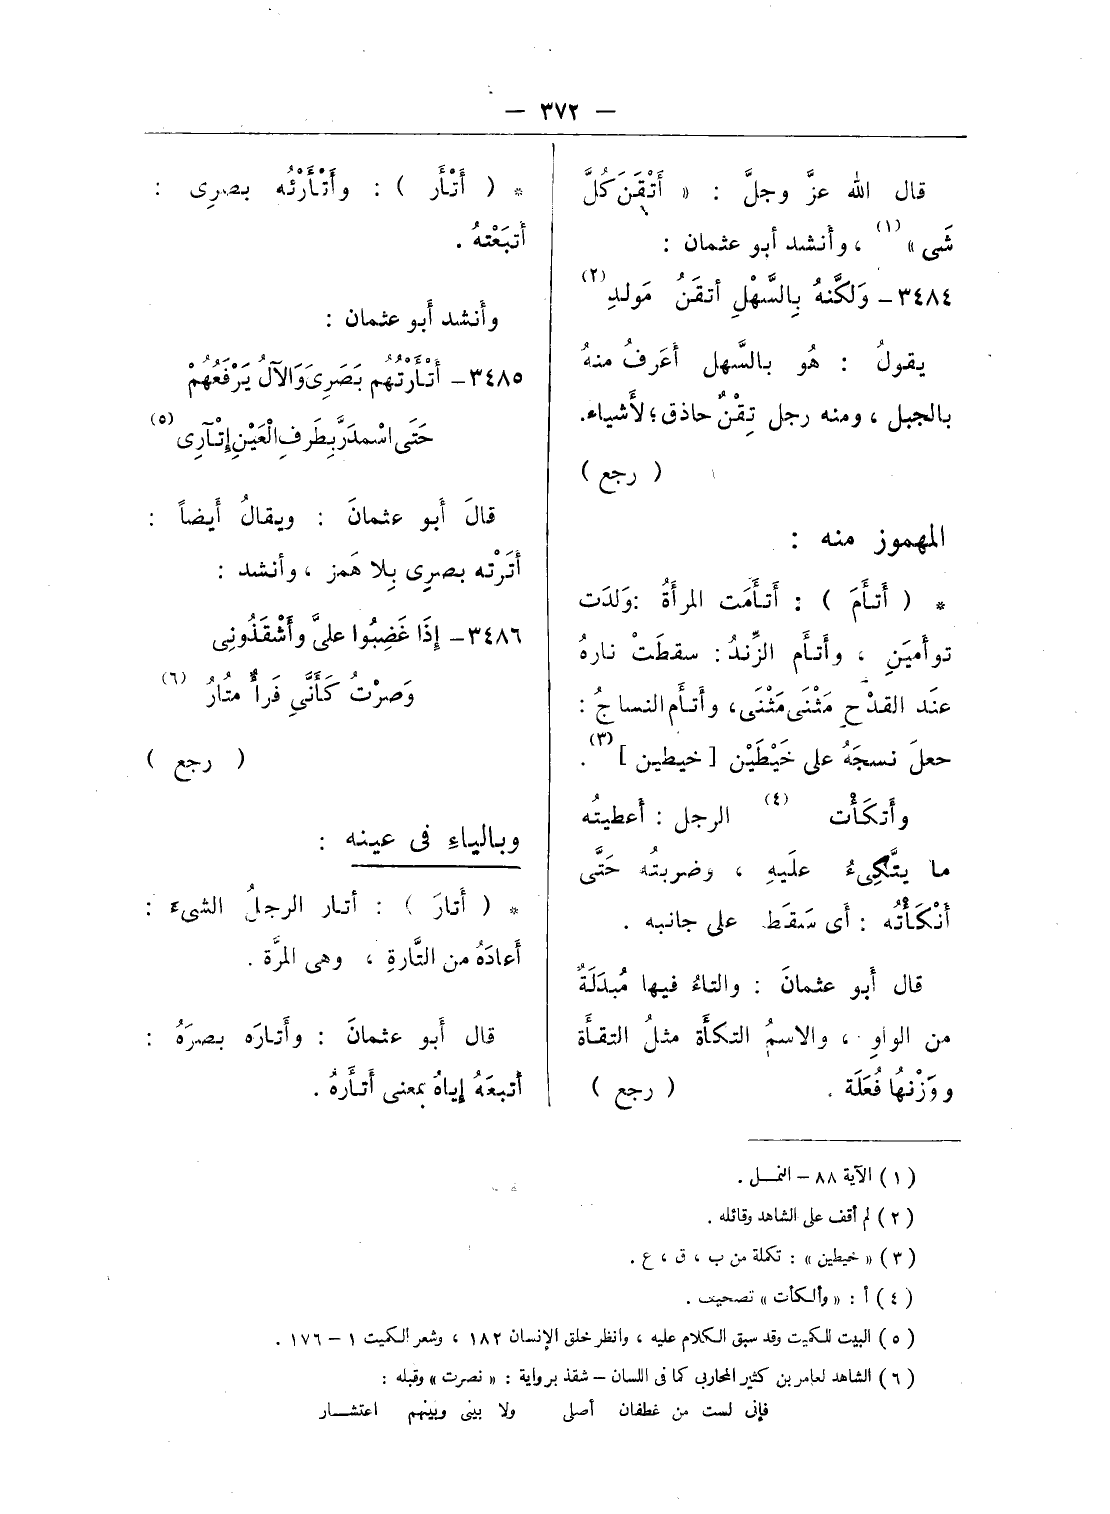 — ٣٧٢ —
قال الله عزَّ وجلَّ : « أَتْقَنَ كُلَّ
شَى » (١) ، وأنشد أبو عثمان :
٣٤٨٤ – وَلكَّنهُ بِالسَّهْلِ أتقَنُ مَولدِ (٢)
يقولُ : هُو بالسَّهل أعَرفُ منهُ
بالجبل ، ومنه رجل تِقْنٌ حاذق ؛ لأَشياء.
( رجع )
المهموز منه :
* ( أَتأَمَ ) : أَتأَمَت المرأَةُ :وَلدَت
توأَمَينِ ، وأَتأَم الزَّندُ : سقطَتْ نارهُ
عنَد القدْحِ مَثْنَى مَثْنَى، وأَتأَم النساجُ :
جعلَ نسجَهُ على خَيْطَيْن [ خيطين ] (٣) .
وأَتكَأْت (٤) الرجل : أَعطيتُه
ما يتَّكِىءُ علَيهِ ، وضربتُه حَتَّى
أَتْكَأْتُه : أَى سَقَط على جانبه .
قال أَبو عثمانَ : والتاءُ فيها مُبدَلَةٌ
من الواوِ ، والاسمُ التكأَة مثلُ التقأَة
ووَزْنهُا فُعَلَة . ( رجع )
* ( أَتْأَر ) : وأَتْأَرْتُه بصرِى :
أَتبَعْتهُ .
وأَنشد أَبو عثمان :
٣٤٨٥ – أَتْأَرْتُهُم بَصَرِى وَالآلُ يَرْفَعُهُمْ
حَتَى اسْمدَرَّ بِطَرفِ الْعَيْنِ إِتْآرِى (٥)
قالَ أَبو عثمانَ : ويقالُ أَيضاً :
أَتَرْته بصرِى بِلا هَمز ، وأنشد :
٣٤٨٦ – إِذَا غَضِبُوا علىَّ وأَشْقَذُونِى
وَصرْتُ كَأَنَّىِ فَرأٌ متُارُ (٦)
( رجع )
وبالياءِ فى عينه :
* ( أَتارَ ) : أتار الرجلُ الشىءَ :
أَعادَهُ من التَّارةِ ، وهى المرَّة .
قال أَبو عثمانَ : وأَتارَه بصرَهُ :
أَتبعَهُ إِياهُ بمعنى أَتأَرهُ .
( ١ ) الآية ٨٨ – النمل .
( ٢ ) لم أقف على الشاهد وقائله .
( ٣ ) « خيطين » : تكملة من ب ، ق ، ع .
( ٤ ) أ : « وألكأت » تصحيف .
( ٥ ) البيت للكميت وقد سبق الكلام عليه ، وانظر خلق الإنسان ١٨٢ ، وشعر الكميت ١ – ١٧٦ .
( ٦ ) الشاهد لعامر بن كثير المحاربى كما فى اللسان – شقذ برواية : « نصرت » وقبله :
فإنى لست من غطفان أصلى ولا بينى وبينهم اعتشار